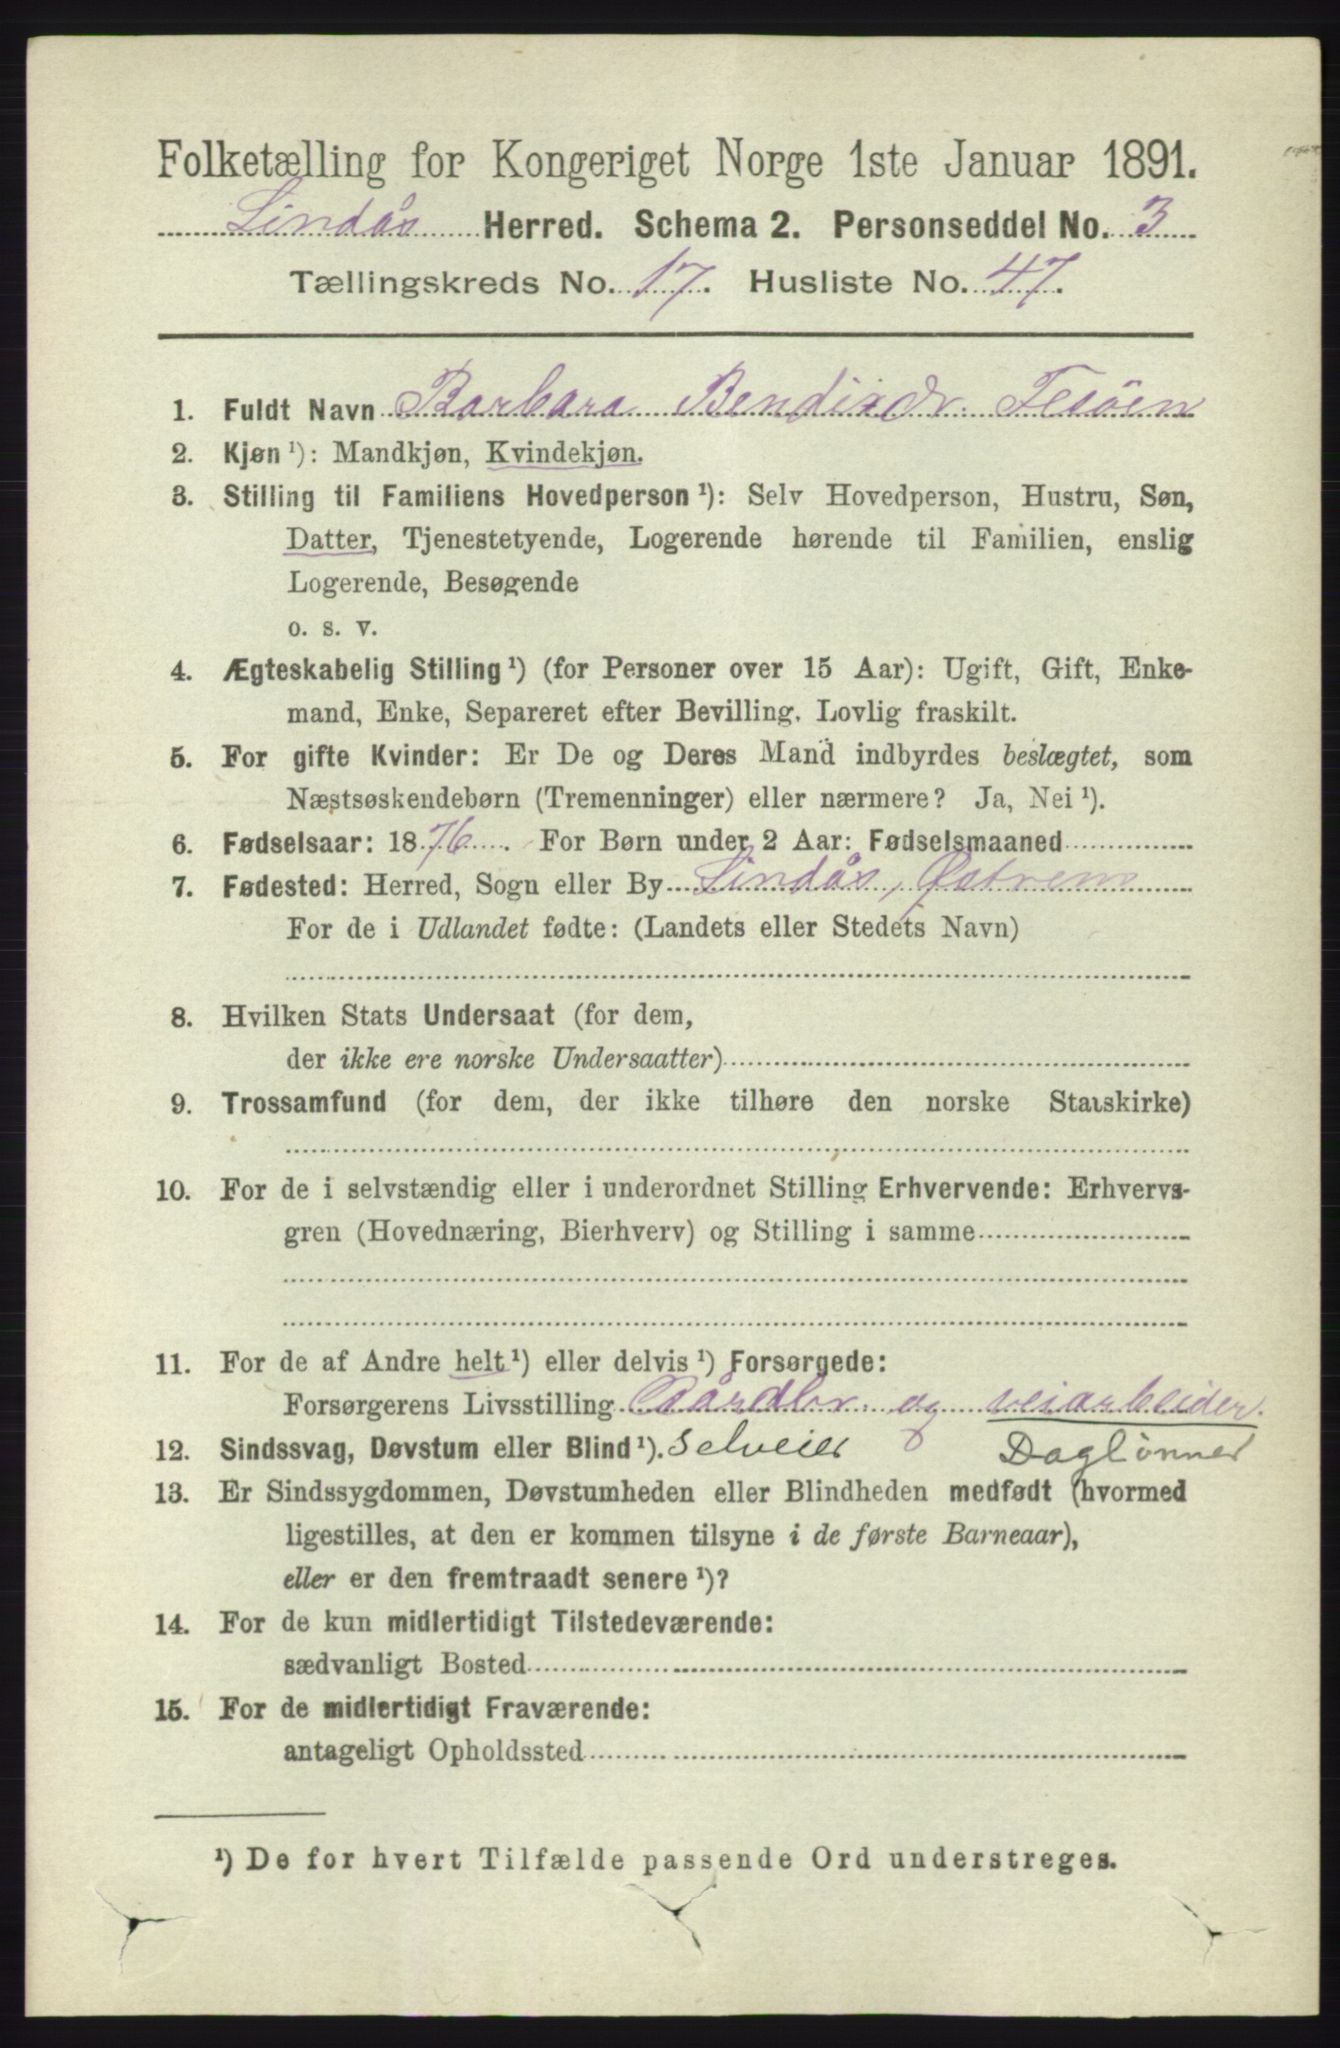 Folketælling for Kongeriget Norge 1ste Januar 1891.
Lindås Herred. Schema 2. Personseddel No. 3
Tællingskreds No. 17. Husliste No. 47.
1. Fuldt Navn Barbara Bendixdr. Fesöen
2. Kjøn ¹): Mandkjøn, Kvindekjøn.
3. Stilling til Familiens Hovedperson ¹): Selv Hovedperson, Hustru, Søn,
Datter, Tjenestetyende, Logerende hørende til Familien, enslig
Logerende, Besøgende
o. s. v.
4. Ægteskabelig Stilling ¹) (for Personer over 15 Aar): Ugift, Gift, Enke-
mand, Enke, Separeret efter Bevilling. Lovlig fraskilt.
5. For gifte Kvinder: Er De og Deres Mand indbyrdes beslægtet, som
Næstsøskendebørn (Tremenninger) eller nærmere? Ja, Nei ¹).
6. Fødselsaar: 1876. For Børn under 2 Aar: Fødselsmaaned
7. Fødested: Herred, Sogn eller By Lindås, Østrem
For de i Udlandet fødte: (Landets eller Stedets Navn)
8. Hvilken Stats Undersaat (for dem,
der ikke ere norske Undersaatter)
9. Trossamfund (for dem, der ikke tilhøre den norske Statskirke)
10. For de i selvstændig eller i underordnet Stilling Erhvervende: Erhvervs-
gren (Hovednæring, Bierhverv) og Stilling i samme
11. For de af Andre helt ¹) eller delvis ¹) Forsørgede:
Forsørgerens Livsstilling Gårdbr. og veiarbeider.
12. Sindssvag, Døvstum eller Blind ¹). Selveier Daglønner
13. Er Sindssygdommen, Døvstumheden eller Blindheden medfødt (hvormed
ligestilles, at den er kommen tilsyne i de første Barneaar),
eller er den fremtraadt senere ¹)?
14. For de kun midlertidigt Tilstedeværende:
sædvanligt Bosted
15. For de midlertidigt Fraværende:
antageligt Opholdssted
¹) De for hvert Tilfælde passende Ord understreges.